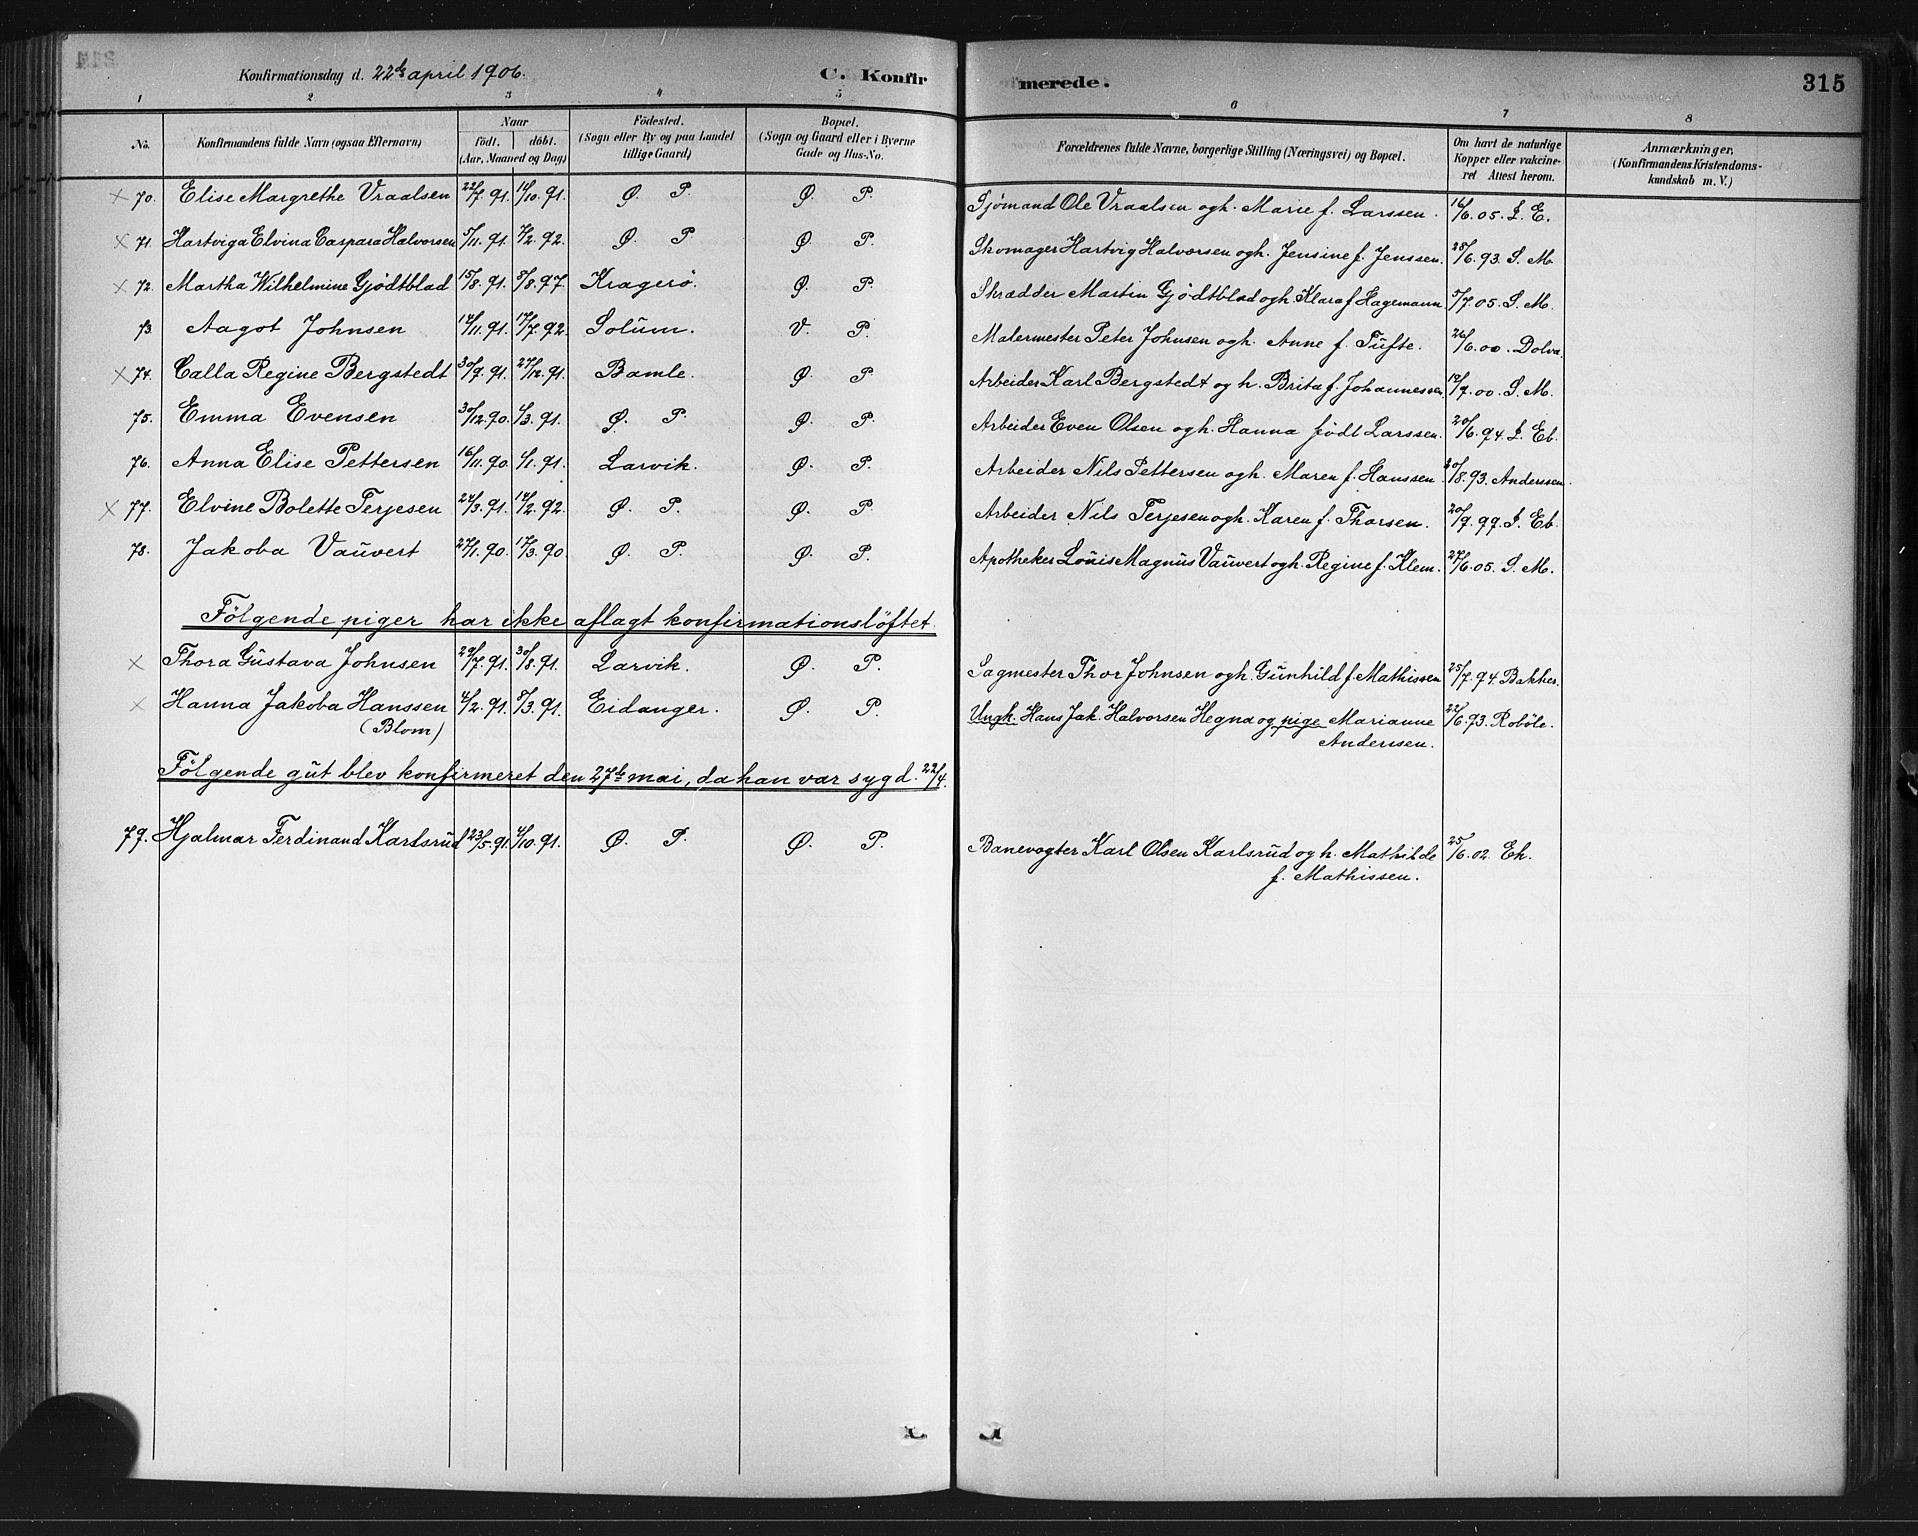 Konfirmationsdag d. 22de april 1906. C. Konfirmerede. 315
1 2 3 4 5 6 7 8
No. Konfirmandens fulde Navn (ogsaa Efternavn) Naar födt. döbt. (Aar, Maaned og Dag) Födested. (Sogn eller By og paa Landet tillige Gaard) Bopæl. (Sogn og Gaard eller i Byerne Gade og Hus-No. Forældrenes fulde Navne, borgerlige Stilling (Næringsvei) og Bopæl. Om havt de naturlige Kopper eller vakcineret Attest herom. Anmærkninger, (Konfirmandens Kristendomskundskab m. V.)
× 70. Elise Margrethe Vraalsen 22/7.91. 14/10.91. Ø. P. Ø. P. Sjømand Ole Vraalsen ogh. Marie f. Larssen. 16/6.05. L. E.
× 71. Hartviga Elvina Caspara Halvorsen 5/11.91. 7/2.92. Ø. P. Ø. P. Skomager Hartvig Halvorsen ogh. Jensine f. Jenssen. 28/6.93. S. M.
× 72. Martha Wilhelmine Gjödtblad 15/8.91. 8/8.97. Kragerö. Ø. P. Skrædder Martin Gjödtblad ogh. Klara f. Hagemann 5/7.05. S. M.
73 Aagot Johnsen 14/11.91. 17/7.92. Solum. V. P. Malermester Peter Johnsen ogh. Anne f. Tufte. 26/6.00. Dolva.
× 74. Calla Regine Bergstedt 30/9.91. 27/12.91. Bamle. Ø. P. Arbeider Karl Bergstedt og h. Brita f. Johannessen 12/9.00. S. M.
75. Emma Evensen 30/12.90. 4/3.91. Ø. P. Ø. P. Arbeider Even Olsen ogh. Hanna födt Larssen. 20/6.94. L. Eb.
76. Anna Elise Pettersen 16/11.90. 4/1.91. Larvik. Ø. P. Arbeider Nils Pettersen ogh. Maren f. Hanssen. 20/8.93. Anderssen.
× 77. Elvine Bolette Terjesen 24/3.91. 14/2.92. Ø. P. Ø. P. Arbeider Nils Terjesen ogh. Karen f. Thorsen. 20/9.99. L. Eb.
78. Jakoba Vauvert 27/1.90. 17/3.90 Ø. P. Ø. P. Apotheker Louis Magnus Vauvert ogh. Regine f. Klem. 27/6.05. S. M.
Fölgende piger har ikke aflagt konfirmationslöftet.
× Thora Gustava Johnsen 29/7.91. 30/8.91. Larvik. Ø. P. Sagmester Thor Johnsen ogh. Gunhild f. Mathissen 25/7.94. Bakken.
× Hanna Jakoba Hanssen 4/2.91. 8/3.91. Eidanger. Ø. P. Ungk. Hans Jak. Halvorsen Hegna og pige Marianne 22/6.93. Robôle.
(Blom) Anderssen.
Fölgende gut blev konfirmeret den 27de mai, da han var syg d. 22/4.
79. Hjalmar Ferdinand Karlsrud 23/5.91. 4/10.91. Ø. P. Ø. P. Banevogter Karl Olsen Karlsrud og h. Mathilde 25/6.02. Eh.
f. Mathissen.